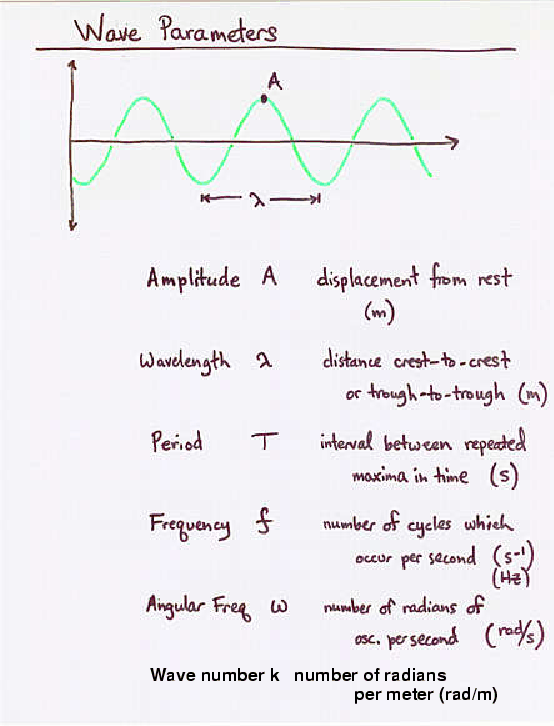 Wave Parameters
A
λ
Amplitude A displacement from rest
(m)
Wavelength λ distance crest-to-crest
or trough-to-trough (m)
Period T interval between repeated
maxima in time (s)
Frequency f number of cycles which
occur per second (s⁻¹)
(Hz)
Angular Freq ω number of radians of
osc. per second (rad/s)
Wave number k number of radians
per meter (rad/m)